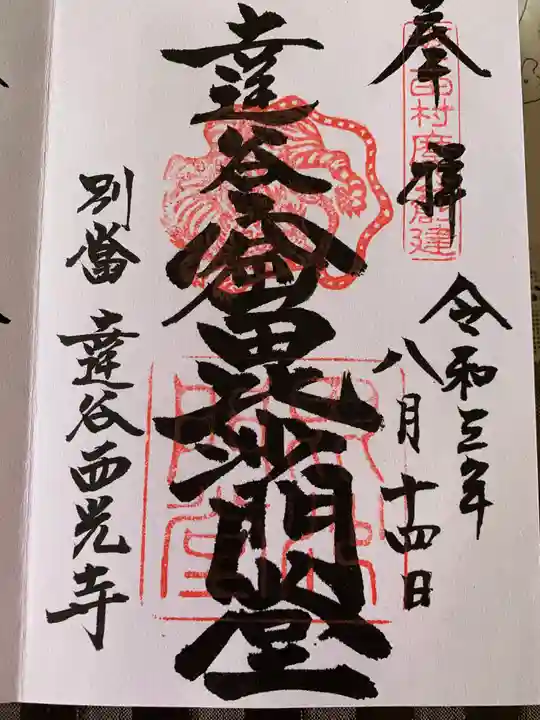 奉拝
田村麿創建
令和三年
八月十四日
達谷窟毘沙門堂
別當 達谷西光寺